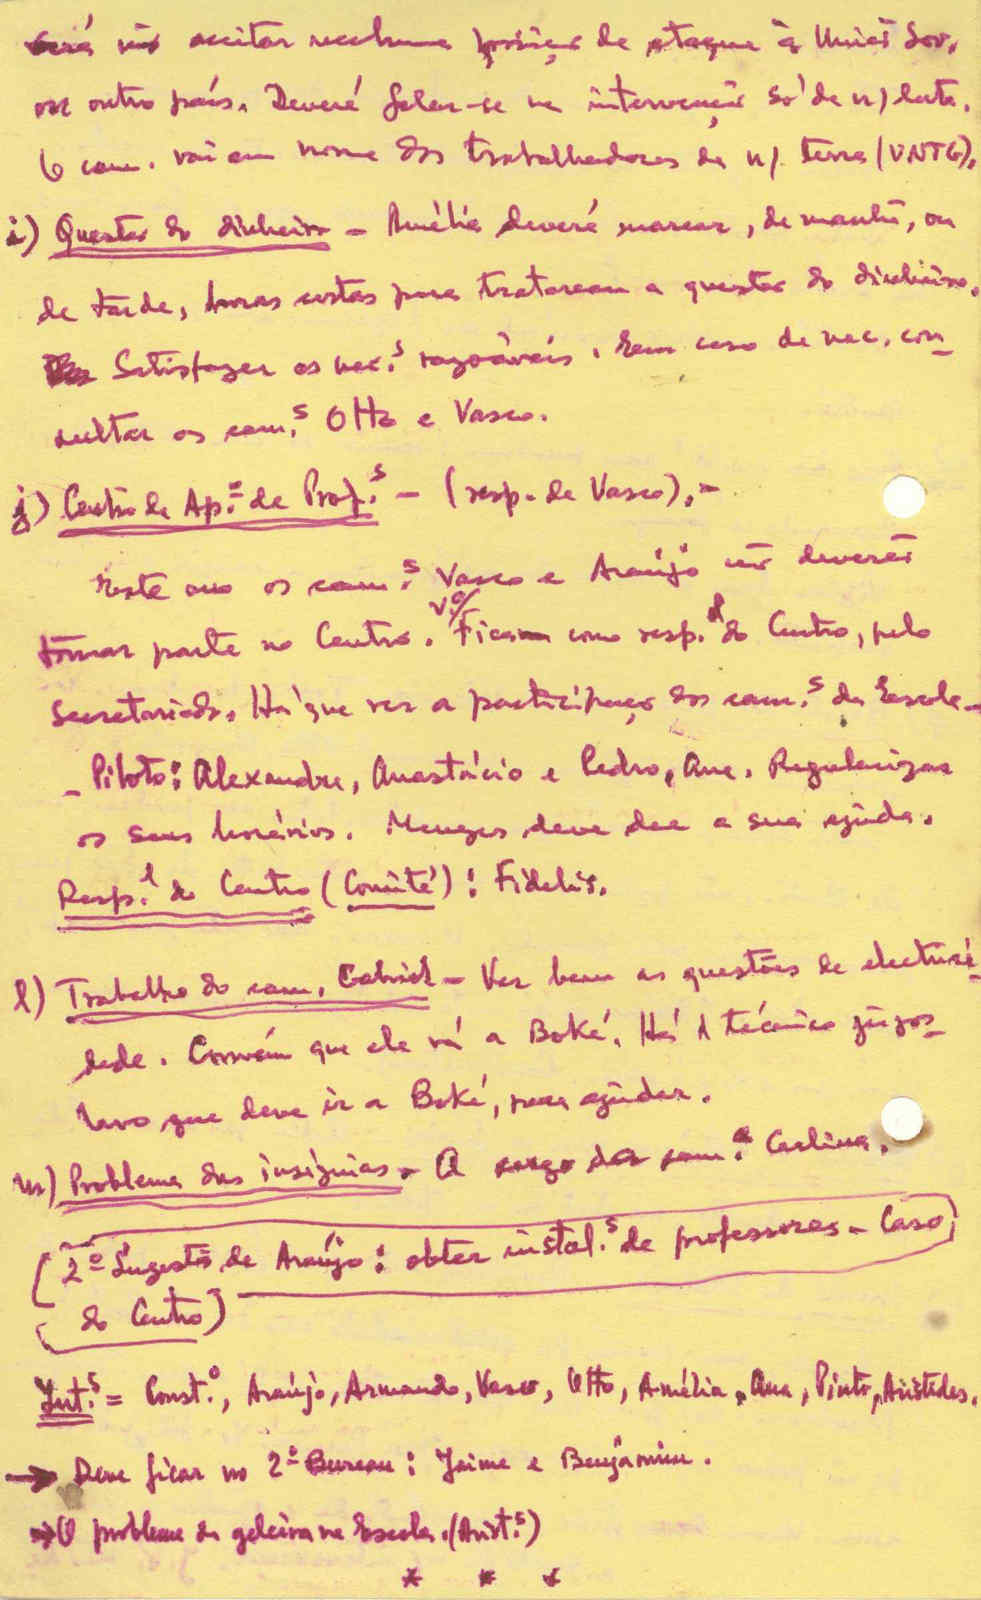 verá não aceitar nenhuma posição de ataque à União Sov.
ou outro país. Deverá falar-se na intervenção só da n/ luta.
O cam. vai em nome dos trabalhadores da n/. terra (UNTG).
i) Questão do dinheiro - Amélia deverá marcar, de manhã, ou
de tarde, horas certas para tratarem a questão do dinheiro.
Satisfazer as nec.s razoáveis. Em caso de nec. con-
sultar os cam.s Otto e Vasco.
j) Centro de Ap.º de Prof.s - (resp. de Vasco).-
Este ano os cam.s Vasco e Araújo não deverão
tomar parte no Centro. Ficam como resp. do Centro, pelo
Secretariado. Há que ver a participação dos cam.s da Escola-
-Piloto: Alexandre, Anastácio e Pedro, Ana. Regularizar
os seus horários. Menezes deve dar a sua ajuda.
Resp.l do Centro (Comité): Fidelis.
l) Trabalho do cam. Gabriel - Ver bem as questões de electrici-
dade. Convém que ele vá a Boké. Há 1 técnico jugos-
lavo que deve ir a Boké, para ajudar.
m) Problema das insígnias - A cargo da cam.a Carlina.
(2ª Sugestão de Araújo: obter instal.s de professores - Caso
do Centro)
Int.s = Const.º, Araújo, Armando, Vasco, Otto, Amélia, Ana, Pinto, Aristides.
→ Deve ficar no 2º Bureau: Jaime e Benjamim.
→ O problema da geleira na Escola. (Arist.s)
* * *